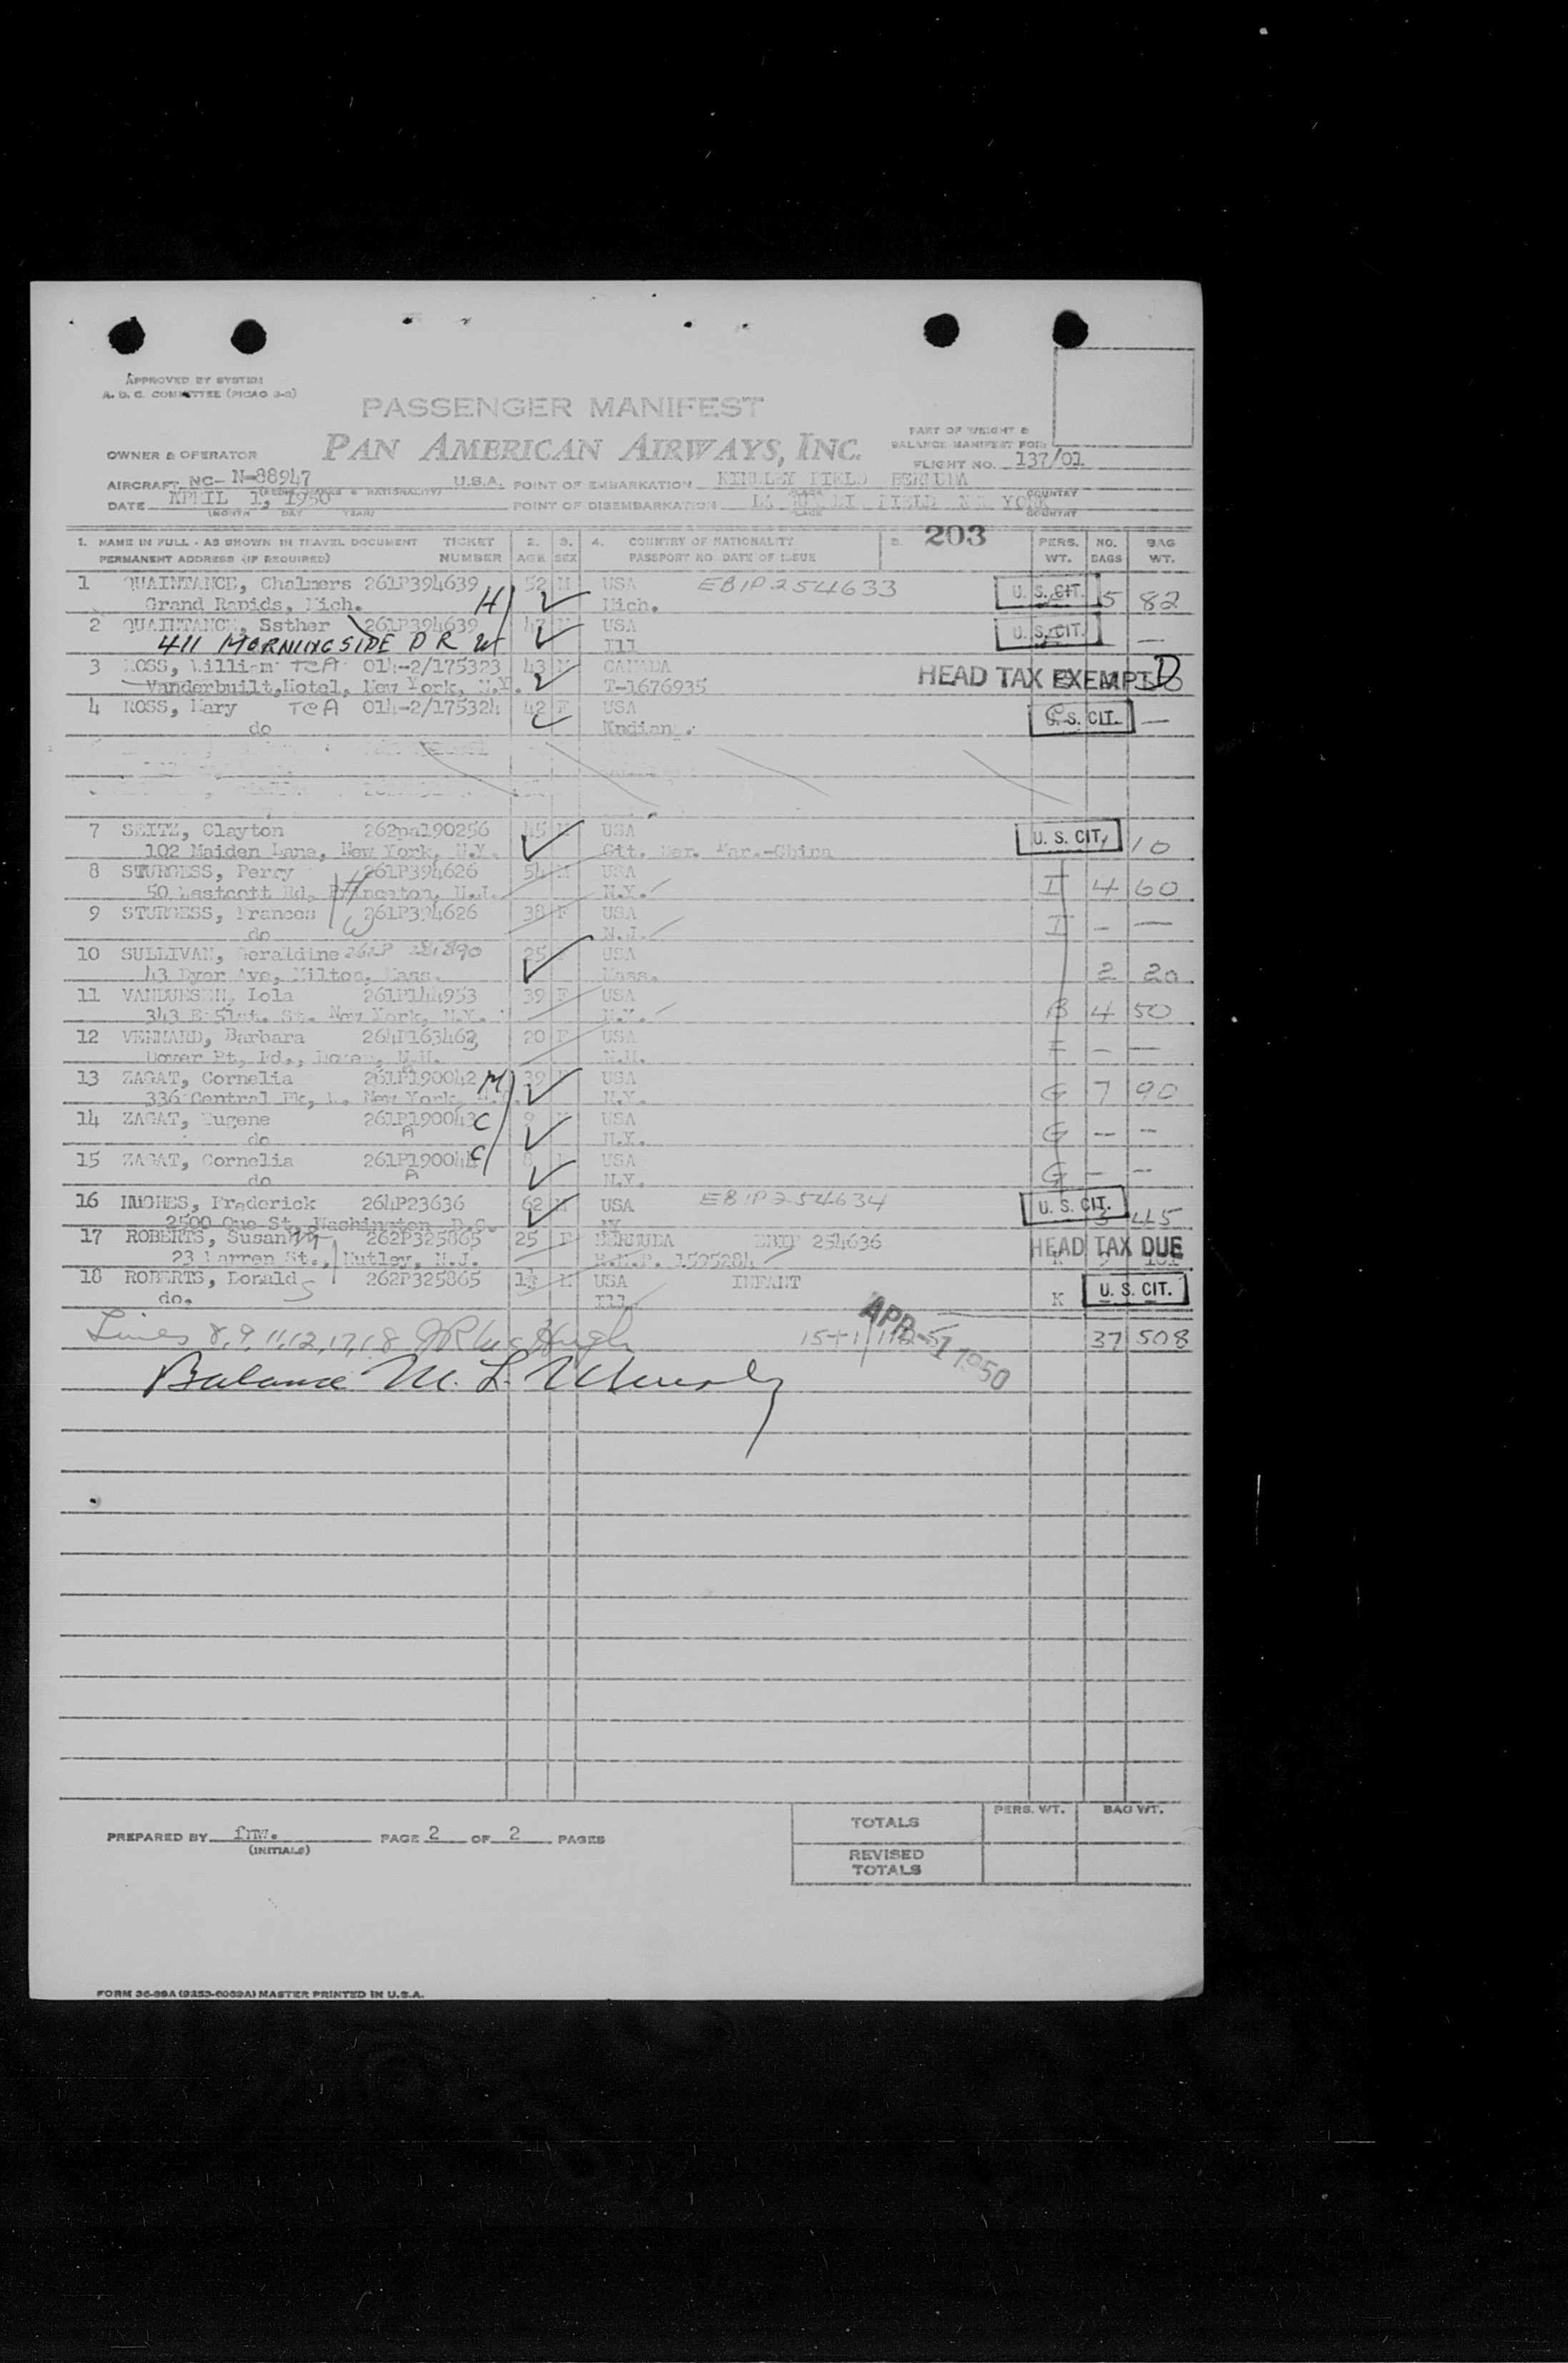 APPROVED BY SYSTEM
A. D. C. COMMITTEE (PICAO 3-2)
PASSENGER MANIFEST
PART OF WEIGHT &
BALANCE MANIFEST FOR:
OWNER & OPERATOR PAN AMERICAN AIRWAYS, INC.
FLIGHT NO. 137/01
AIRCRAFT NC- N-88947 U.S.A. POINT OF EMBARKATION KINDLEY FIELD BERMUDA
DATE APRIL 1, 1950 POINT OF DISEMBARKATION
(MONTH DAY YEAR) PLACE COUNTRY
1. NAME IN FULL - AS SHOWN IN TRAVEL DOCUMENT TICKET 2. 3. 4. COUNTRY OF NATIONALITY 5. 203 PERS. NO. BAG
PERMANENT ADDRESS (IF REQUIRED) NUMBER AGE SEX PASSPORT NO DATE OF ISSUE WT. BAGS WT.
1 QUAINTANCE, Chalmers 261P394639 52 M USA EBIP254633 U. S. CIT. 5 82
Grand Rapids, Mich. H Mich.
2 QUAINTANCE, Ssther 261P394639 47 USA U. S. CIT. —
411 MORNINGSIDE DR W Ill
3 ROSS, William TCA 014-2/175323 43 M CANADA HEAD TAX EXEMPT
Vanderbuilt,Hotel, New York, N.Y. T-1676935
4 ROSS, Mary TCA 014-2/175324 42 F USA U. S. CIT. —
do
7 SEITZ, Clayton 262pa190256 45 M USA U. S. CIT. 1 10
102 Maiden Lane, New York, N.Y. Cit. Mar. War.-China
8 STURGESS, Percy 261P394626 54 M USA I 4 60
Princeton, N.J. N.Y.
9 STURGESS, Frances 261P394626 38 F USA I — —
do W N.J.
10 SULLIVAN, Geraldine 25 USA 2 20
43 Dyer Ave, Milton, Mass. Mass.
11 Iola 261P144953 39 F USA B 4 50
343 E 51st. St. New York, N.Y. N.Y.
12 VENNARD, Barbara 264P163463 20 F USA F — —
Dover Pt, Rd., Dover, N.H. N.H.
13 ZAGAT, Cornelia 261P190042 M 39 USA G 7 90
336 Central Pk, New York, N.Y. N.Y.
14 ZAGAT, Eugene 261P190043 C 9 M USA G — —
do A N.Y.
15 ZAGAT, Cornelia 261P190044 C 8 USA G — —
do A N.Y.
16 HUGHES, Frederick 264P23636 62 M USA EBIP254634 U. S. CIT. 3 45
2500 Que St, Washington D.C. NY
17 ROBERTS, Susan M 262P325865 25 F BERMUDA EBIP 254636 HEAD TAX DUE
23 Warren St., Nutley, N.J. 1595284 K
18 ROBERTS, Donald S 262P325865 1½ M USA INFANT U. S. CIT.
do. Ill K
Lines 8,9,11,12,17,18 15+1 APR -5 1950 37 508
Balance M. L.
PREPARED BY fnw. PAGE 2 OF 2 PAGES
(INITIALS)
PERS. WT. BAG WT.
TOTALS
REVISED
TOTALS
FORM 36-89A (9253-6089A) MASTER PRINTED IN U.S.A.